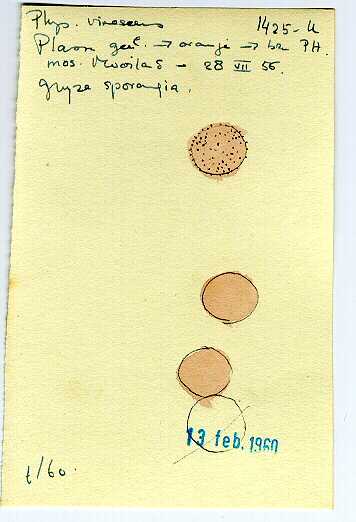 Phys. virescens 1425-u
Plasm geel → oranje → br PH.
mos. 28 VII 56.
gryze sporangia.
13 feb. 1960
t/60.